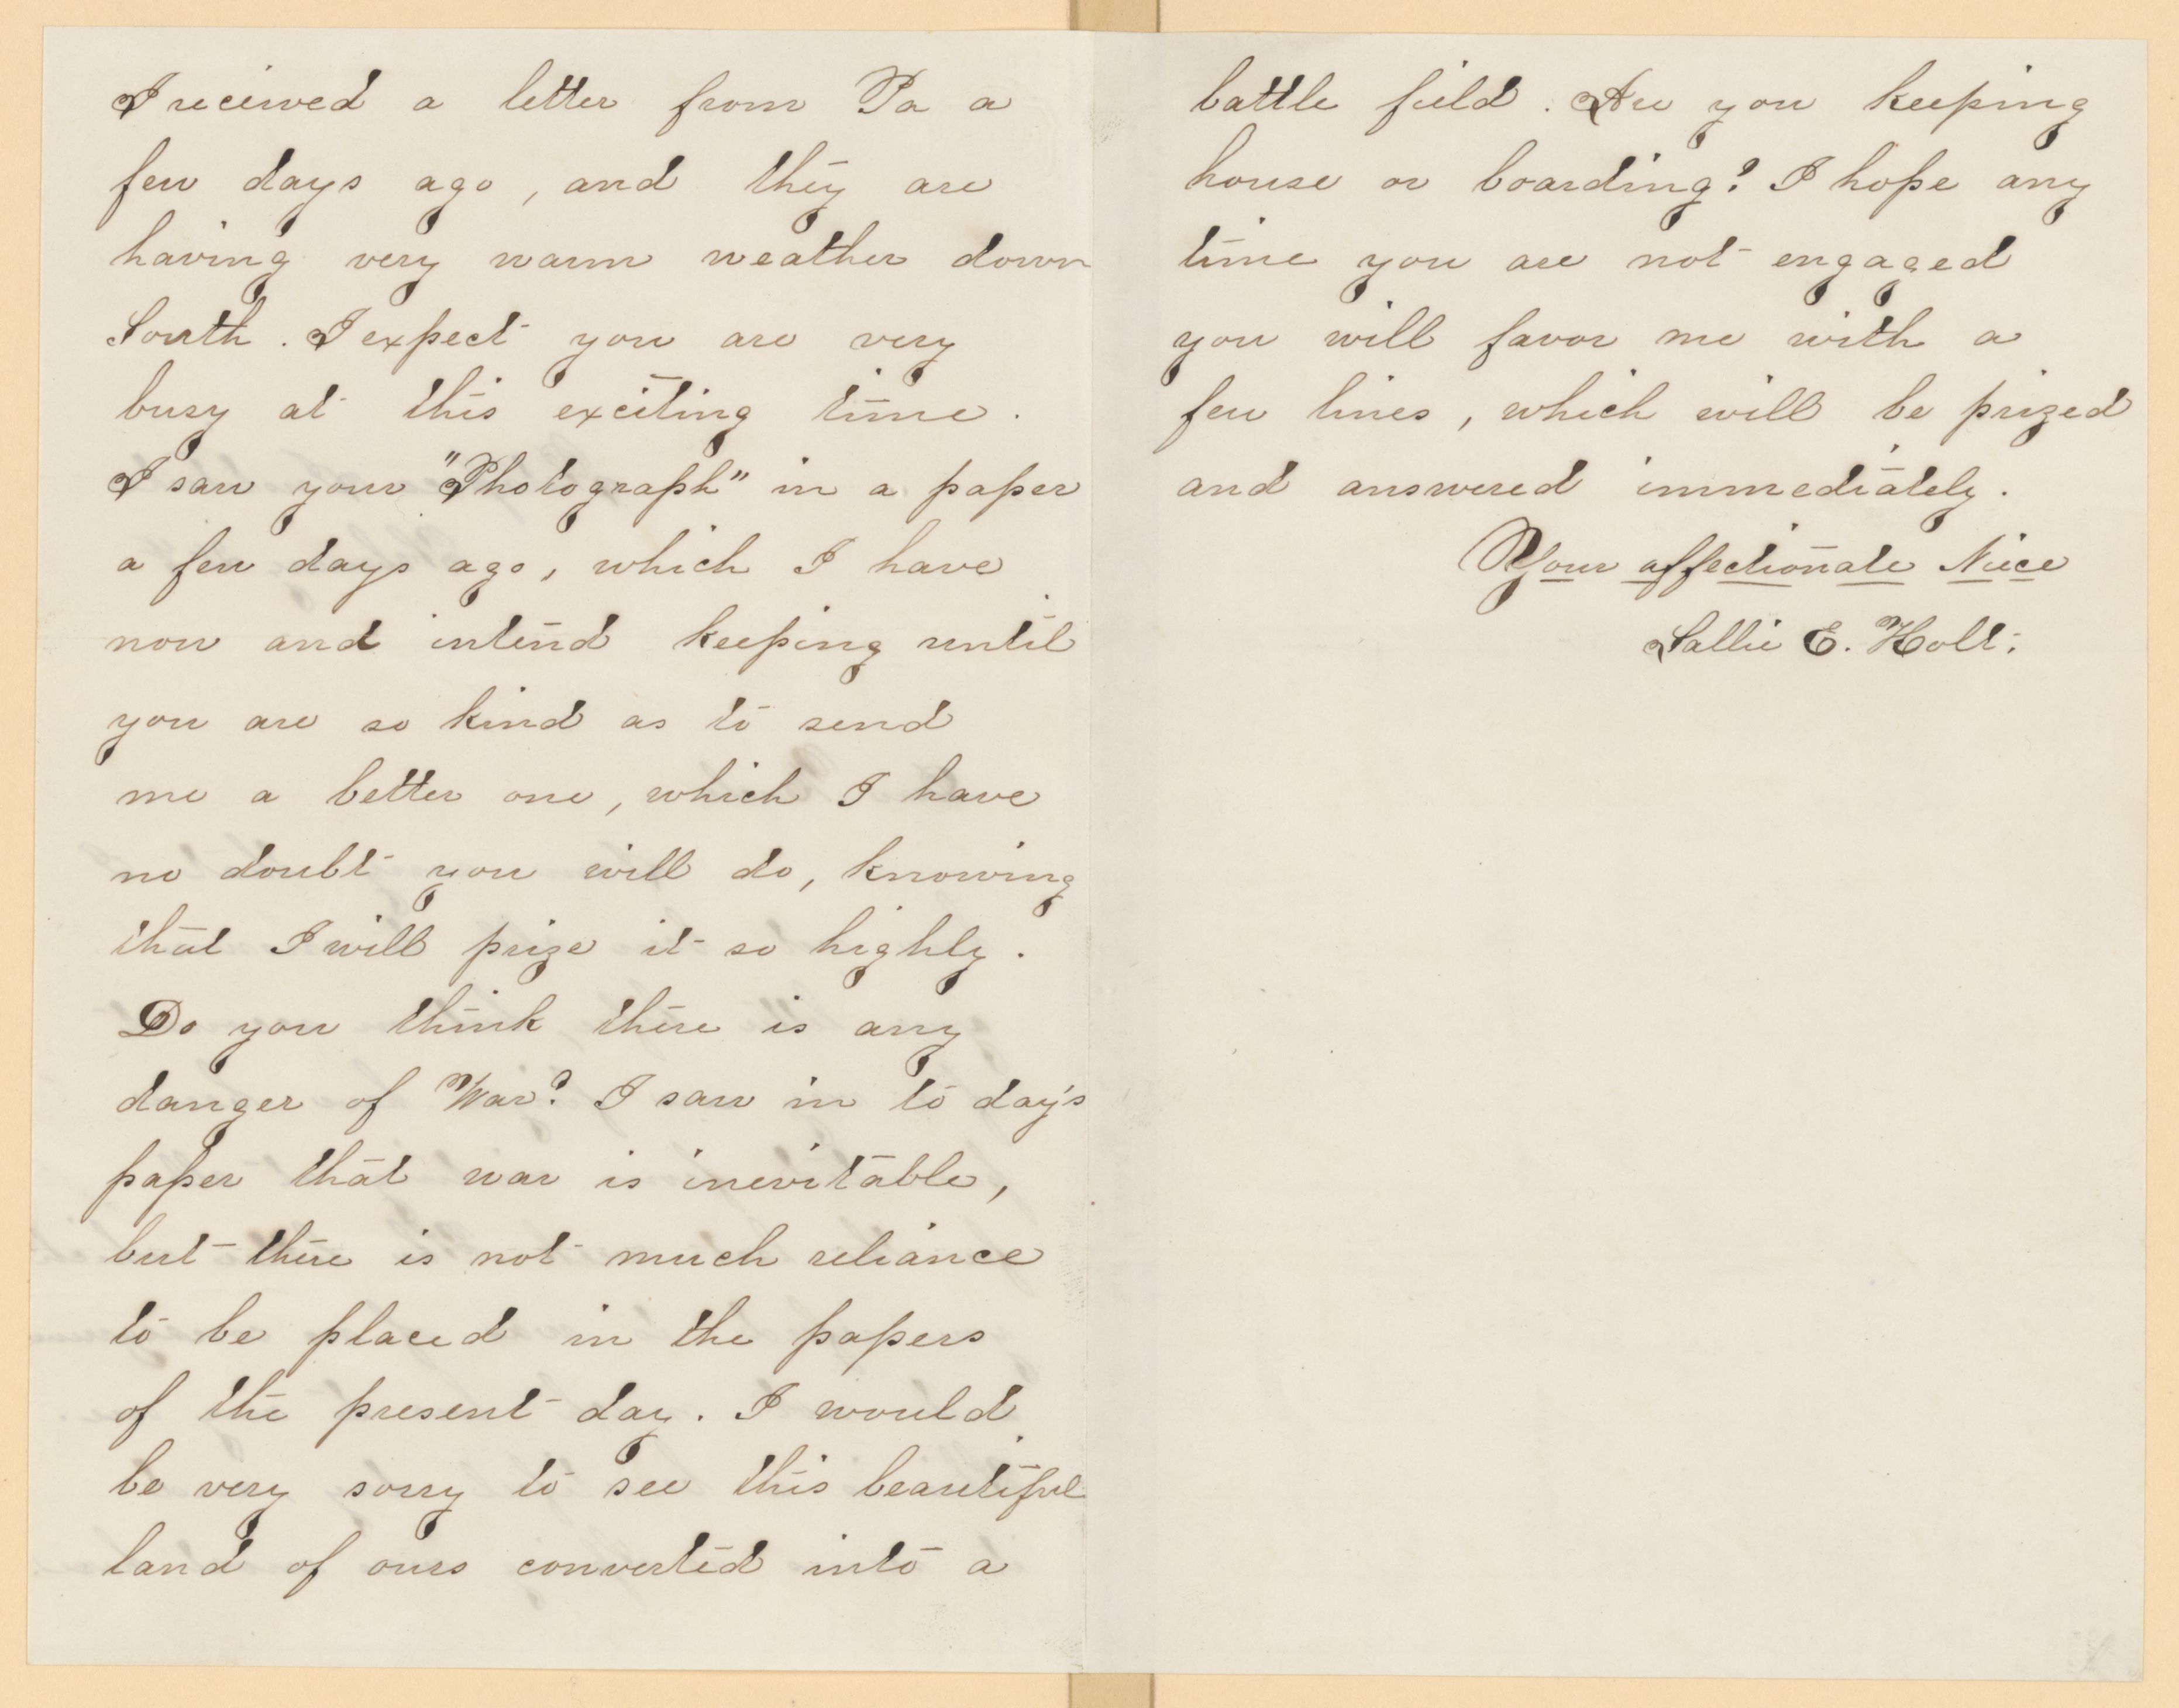 I received a letter from Pa a
few days ago, and they are
having very warm weather down
South. I expect you are very
busy at this exciting time.
I saw your "Photograph" in a paper
a few days ago, which I have
now and intend keeping until
you are so kind as to send
me a better one, which I have
no doubt you will do, knowing
that I will prize it so highly.
Do you think there is any
danger of War? I saw in to day's
paper that war is inevitable,
but there is not much reliance
to be placed in the papers
of the present day. I would
be very sorry to see this beautiful
land of ours converted into a
battle field. Are you keeping
house or boarding? I hope any
time you are not engaged
you will favor me with a
few lines, which will be prized
and answered immediately.
Your affectionate Niece
Sallie E. Holt.